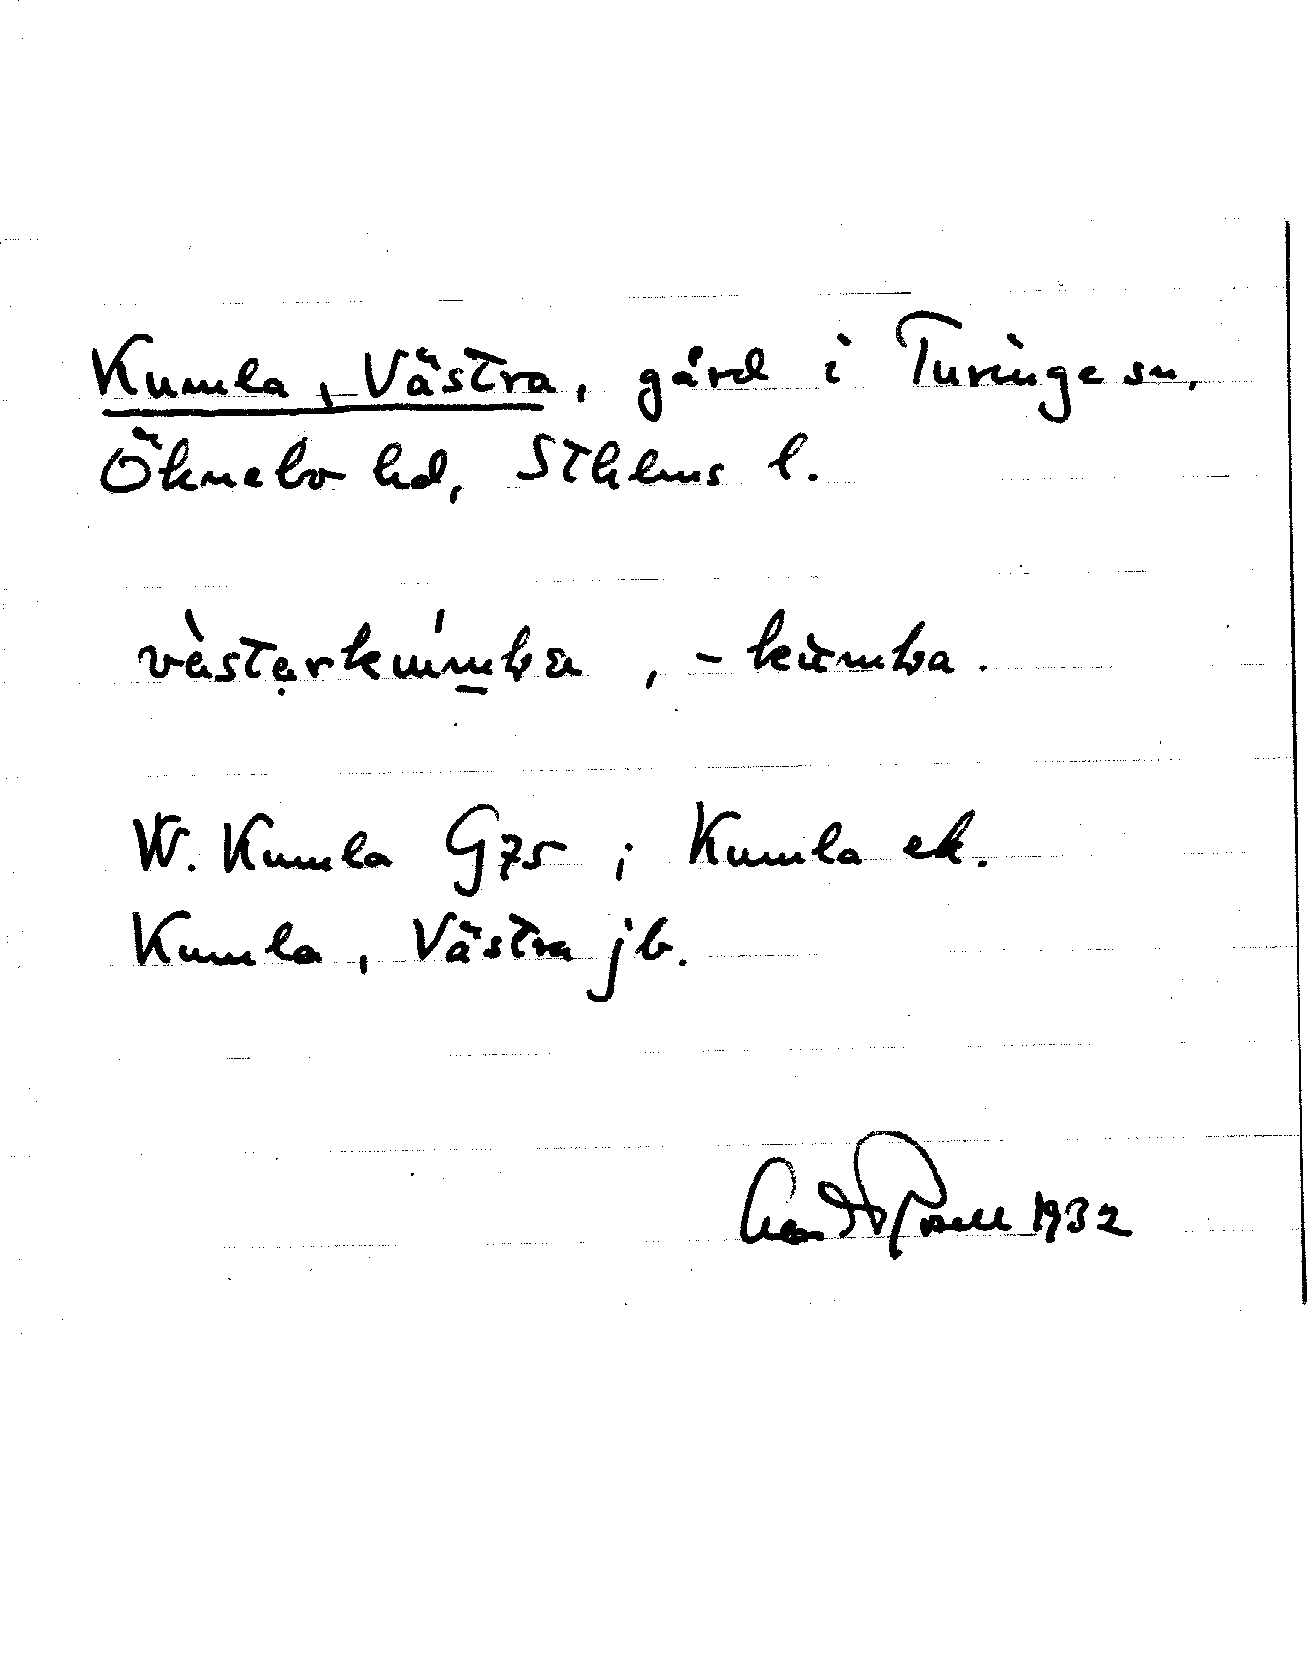 Kumla, Västra, gård i Turinge sn,
Öknebo hd, Sthlms l.
vàstạrkúm̲ba, -kùmba.
W. Kumla G 75; Kumla ek.
Kumla, Västra jb.
1932